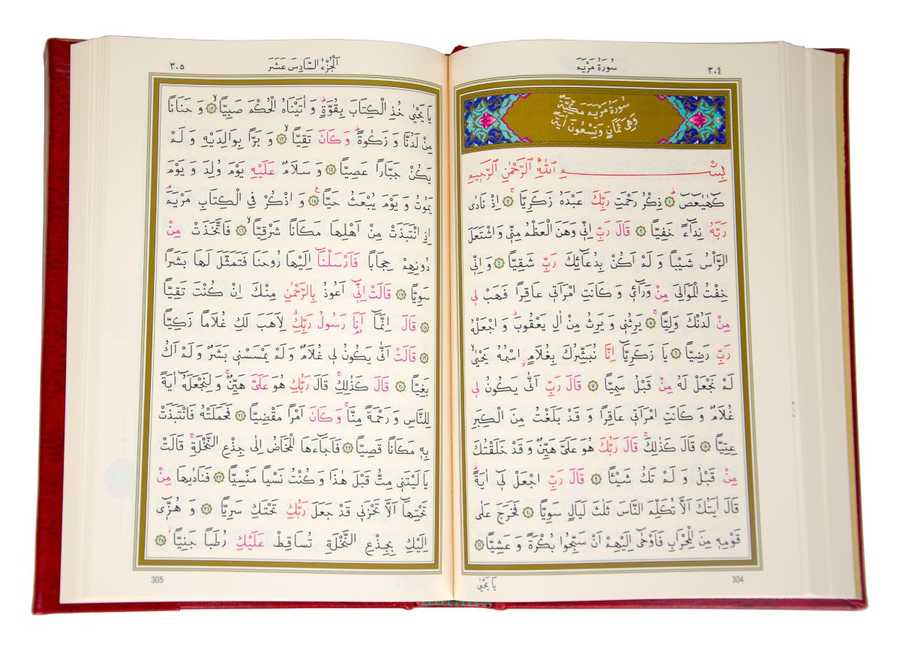 ٣٠٤
سُورَةُ مَرْيَمَ
سُورَةُ مَرْيَمَ مَكِّيَّةٌ
وَهِيَ ثَمَانٍ وَتِسْعُونَ اٰيَةً
بِسْمِ اللّٰهِ الرَّحْمٰنِ الرَّحِيمِ
كٓهٰيٰعٓصٓ ۞ ذِكْرُ رَحْمَتِ رَبِّكَ عَبْدَهُ زَكَرِيَّا ۞ اِذْ نَادٰى
رَبَّهُ نِدَٓاءً خَفِيًّا ۞ قَالَ رَبِّ اِنِّي وَهَنَ الْعَظْمُ مِنِّي وَاشْتَعَلَ
الرَّأْسُ شَيْبًا وَ لَمْ اَكُنْ بِدُعَٓائِكَ رَبِّ شَقِيًّا ۞ وَ اِنِّي
خِفْتُ الْمَوَالِيَ مِنْ وَرَٓائِي وَ كَانَتِ امْرَاَتِي عَاقِرًا فَهَبْ لِي
مِنْ لَدُنْكَ وَلِيًّا ۞ يَرِثُنِي وَ يَرِثُ مِنْ اٰلِ يَعْقُوبَ وَ اجْعَلْهُ
رَبِّ رَضِيًّا ۞ يَا زَكَرِيَّٓا اِنَّا نُبَشِّرُكَ بِغُلَامٍ اسْمُهُ يَحْيٰى
لَمْ نَجْعَلْ لَهُ مِنْ قَبْلُ سَمِيًّا ۞ قَالَ رَبِّ اَنّٰى يَكُونُ لِي
غُلَامٌ وَ كَانَتِ امْرَاَتِي عَاقِرًا وَ قَدْ بَلَغْتُ مِنَ الْكِبَرِ
عِتِيًّا ۞ قَالَ كَذٰلِكَ قَالَ رَبُّكَ هُوَ عَلَيَّ هَيِّنٌ وَ قَدْ خَلَقْتُكَ
مِنْ قَبْلُ وَ لَمْ تَكُ شَيْـًٔا ۞ قَالَ رَبِّ اجْعَلْ لِٓي اٰيَةً
قَالَ اٰيَتُكَ اَلَّا تُكَلِّمَ النَّاسَ ثَلٰثَ لَيَالٍ سَوِيًّا ۞ فَخَرَجَ عَلٰى
قَوْمِهِ مِنَ الْمِحْرَابِ فَاَوْحٰٓى اِلَيْهِمْ اَنْ سَبِّحُوا بُكْرَةً وَ عَشِيًّا ۞
يَا يَحْيٰى
304
٣٠٥
اَلْجُزْءُ السَّادِسَ عَشَرَ
يَا يَحْيٰى خُذِ الْكِتَابَ بِقُوَّةٍ وَ اٰتَيْنَاهُ الْحُكْمَ صَبِيًّا ۞ وَ حَنَانًا
مِنْ لَدُنَّا وَ زَكٰوةً وَ كَانَ تَقِيًّا ۞ وَ بَرًّا بِوَالِدَيْهِ وَ لَمْ
يَكُنْ جَبَّارًا عَصِيًّا ۞ وَ سَلَامٌ عَلَيْهِ يَوْمَ وُلِدَ وَ يَوْمَ
يَمُوتُ وَ يَوْمَ يُبْعَثُ حَيًّا ۞ وَ اذْكُرْ فِي الْكِتَابِ مَرْيَمَ
اِذِ انْتَبَذَتْ مِنْ اَهْلِهَا مَكَانًا شَرْقِيًّا ۞ فَاتَّخَذَتْ مِنْ
دُونِهِمْ حِجَابًا فَاَرْسَلْنَٓا اِلَيْهَا رُوحَنَا فَتَمَثَّلَ لَهَا بَشَرًا
سَوِيًّا ۞ قَالَتْ اِنِّٓي اَعُوذُ بِالرَّحْمٰنِ مِنْكَ اِنْ كُنْتَ تَقِيًّا
۞ قَالَ اِنَّمَٓا اَنَا رَسُولُ رَبِّكِ لِاَهَبَ لَكِ غُلَامًا زَكِيًّا
۞ قَالَتْ اَنّٰى يَكُونُ لِي غُلَامٌ وَ لَمْ يَمْسَسْنِي بَشَرٌ وَ لَمْ اَكُ
بَغِيًّا ۞ قَالَ كَذٰلِكِ قَالَ رَبُّكِ هُوَ عَلَيَّ هَيِّنٌ وَ لِنَجْعَلَهُٓ اٰيَةً
لِلنَّاسِ وَ رَحْمَةً مِنَّا وَ كَانَ اَمْرًا مَقْضِيًّا ۞ فَحَمَلَتْهُ فَانْتَبَذَتْ
بِهِ مَكَانًا قَصِيًّا ۞ فَاَجَٓاءَهَا الْمَخَاضُ اِلٰى جِذْعِ النَّخْلَةِ قَالَتْ
يَا لَيْتَنِي مِتُّ قَبْلَ هٰذَا وَ كُنْتُ نَسْيًا مَنْسِيًّا ۞ فَنَادٰيهَا مِنْ
تَحْتِهَٓا اَلَّا تَحْزَنِي قَدْ جَعَلَ رَبُّكِ تَحْتَكِ سَرِيًّا ۞ وَ هُزِّٓي
اِلَيْكِ بِجِذْعِ النَّخْلَةِ تُسَاقِطْ عَلَيْكِ رُطَبًا جَنِيًّا ۞
305